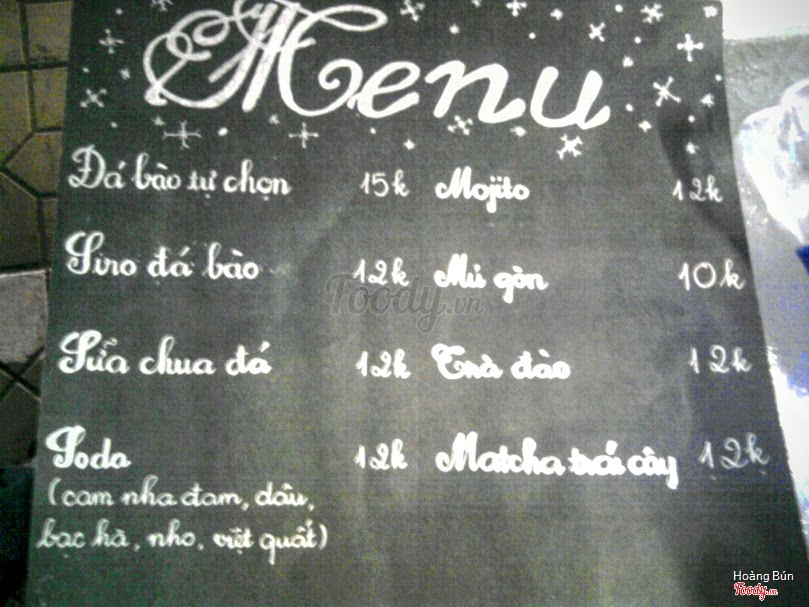 Menu
Đá bào tự chọn 15k Mojito 12k
Siro đá bào 12k Mủ gòn 10k
Foody.vn
Sữa chua đá 12k Trà đào 12k
Soda 12k Matcha trái cây 12k
(cam nha đam, dâu,
bạc hà, nho, việt quất)
Hoàng Bún
Foody.vn